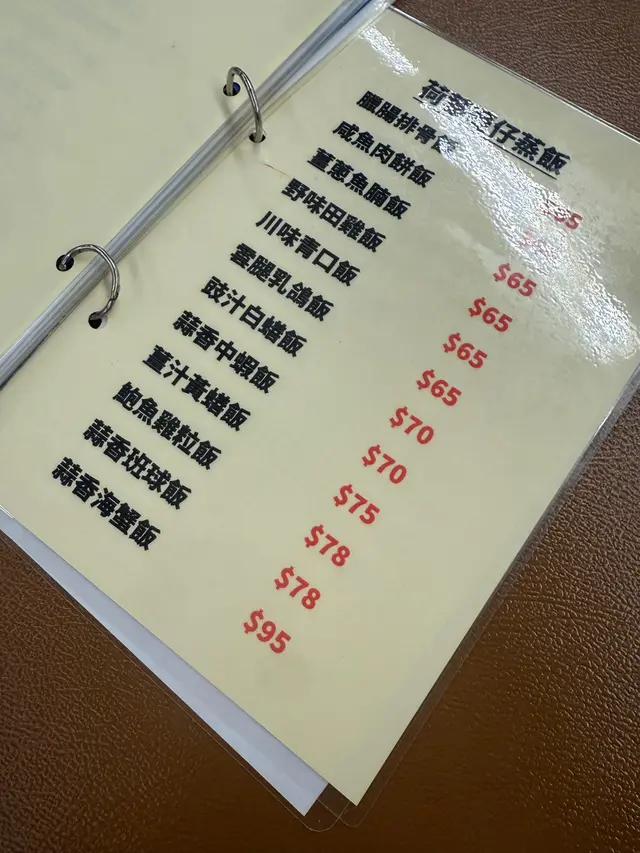 荷葉籠仔蒸飯
臘腸排骨飯
咸魚肉餅飯
薑葱魚腩飯 $65
野味田雞飯 $65
川味青口飯 $65
雲腿乳鴿飯 $65
豉汁白蟮飯 $70
蒜香中蝦飯 $70
薑汁黃蟮飯 $75
鮑魚雞粒飯 $78
蒜香班球飯 $78
蒜香海蟹飯 $95